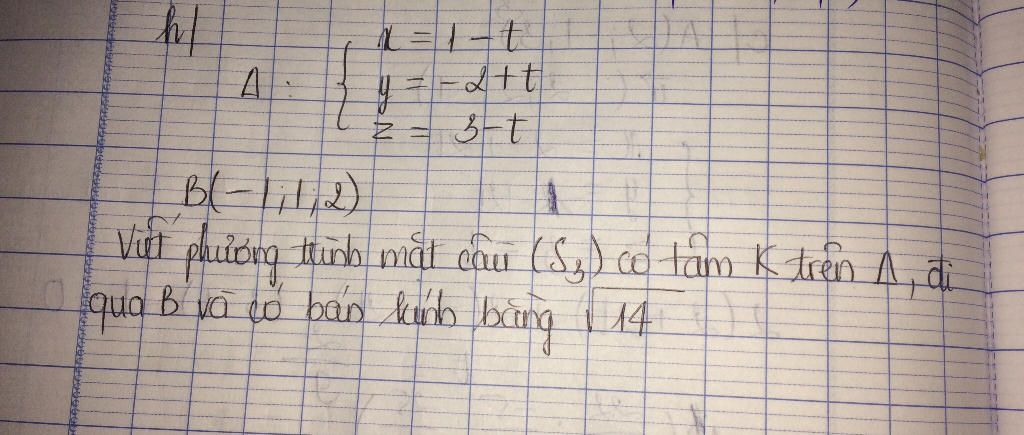 h/
Δ : { x = 1 - t
y = -2 + t
z = 3 - t
B(-1;1;2)
Viết phương trình mặt cầu (S₃) có tâm K trên Δ, đi
qua B và có bán kính bằng √14